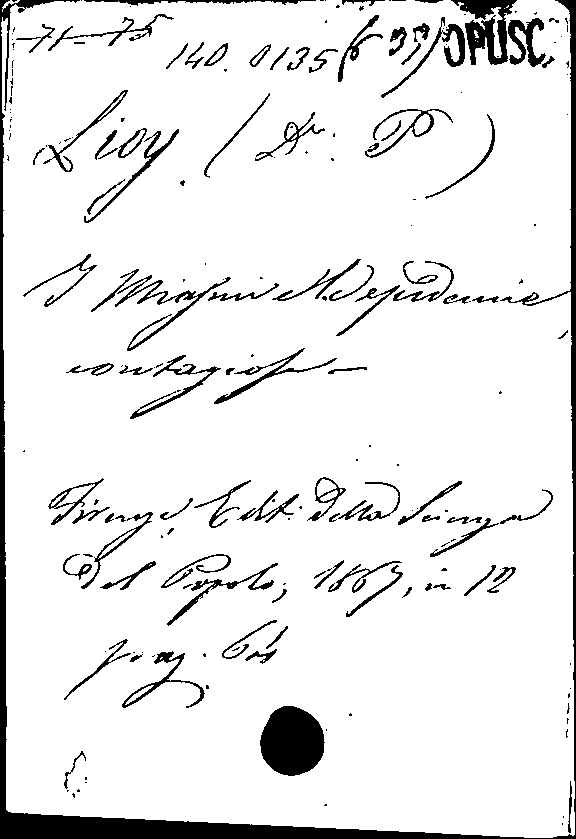 71-75
140. 0135 (6 33) OPUSC.
Lioy. (Dr. P)
I Miasmi e le epidemie
contagiose -
Firenze, Edit. Della Scienza
Del Popolo, 1867, in 12
pag.